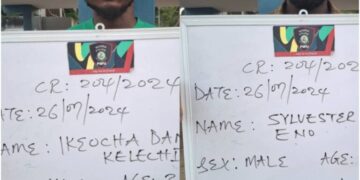 CR: 204/2024
DATE: 26/07/2024
NAME: IKEOCHA DAN
KELECHI
CR: 204/202
DATE: 26/07/2024
NAME: SYLVESTER
ENO
SEX: MALE AGE: